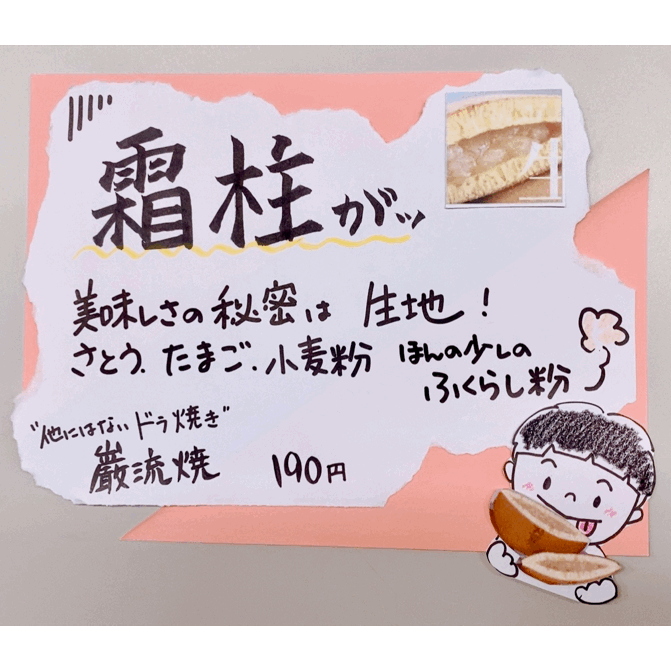 霜柱がッ
生
美味しさの秘密は 生地！
さとう、たまご、小麦粉 ほんの少しの
ふくらし粉
"他にはないドラ焼き"
巌流焼 190円